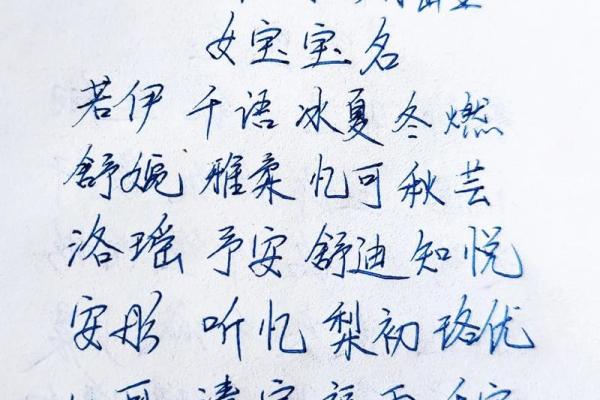 女宝宝名
若伊 千语 冰夏 冬燃
舒婉 雅柔 忆可 秋芸
洛瑶 予安 舒迪 知悦
安彤 听忆 梨初 珞优